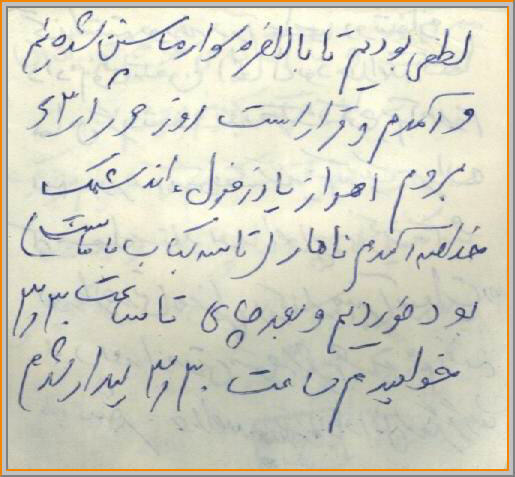 لطفی بودیم تا بالاخره سوار ماشین شده‌ایم
و آمدم و قرار است روز
بروم اهواز یا دزفول، اندیشمک
خلاصه آمدم ناهار (تاس کباب با ماست)
بود خوردیم و بعد چای تا ساعت ۳٫۳۰
خوابیدم ساعت ۳٫۳۰ بیدار شدم